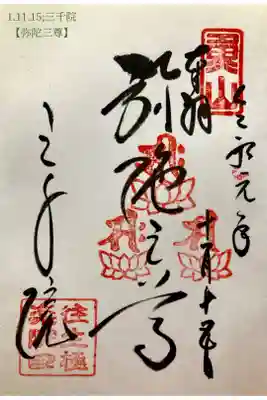 1.11.15;三千院
【弥陀三尊】
令和元年
十一月十五日
奉拝
弥陀三尊
三千院
往生極
楽院印